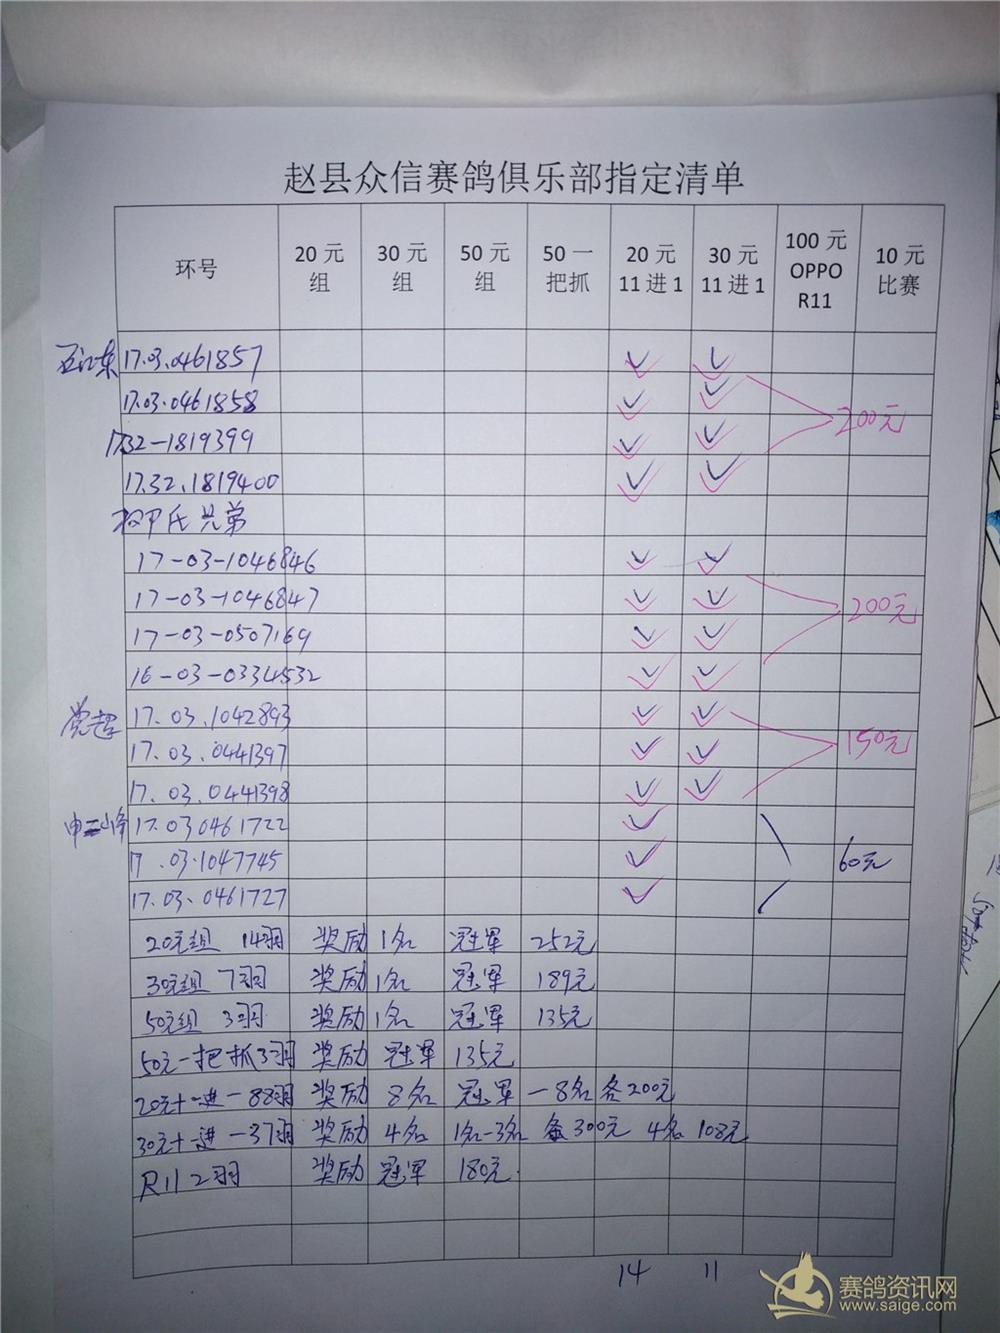 赵县众信赛鸽俱乐部指定清单
环号 20元组 30元组 50元组 50一把抓 20元11进1 30元11进1 100元OPPO R11 10元比赛
17.03.0461857
17.03.0461858
200元
1732-1819399
17.32.1819400
氏兄弟
17-03-1046846
17-03-1046847
200元
17-03-0507169
16-03-0334532
党超 17.03.1042893
17.03.0441397 150元
17.03.0441398
申二峰 17.030461722
17.03.1047745 60元
17.03.0461727
20元组 14羽 奖励 1名 冠军 252元
30元组 7羽 奖励 1名 冠军 189元
50元组 3羽 奖励 1名 冠军 135元
50元一把抓3羽 奖励 冠军 135元
20元十一进一88羽 奖励 8名 冠军 一8名 各200元
30元十一进一37羽 奖励 4名 1名-3名 各300元 4名 108元
R11 2羽 奖励 冠军 180元
14 11
赛鸽资讯网
www.saige.com